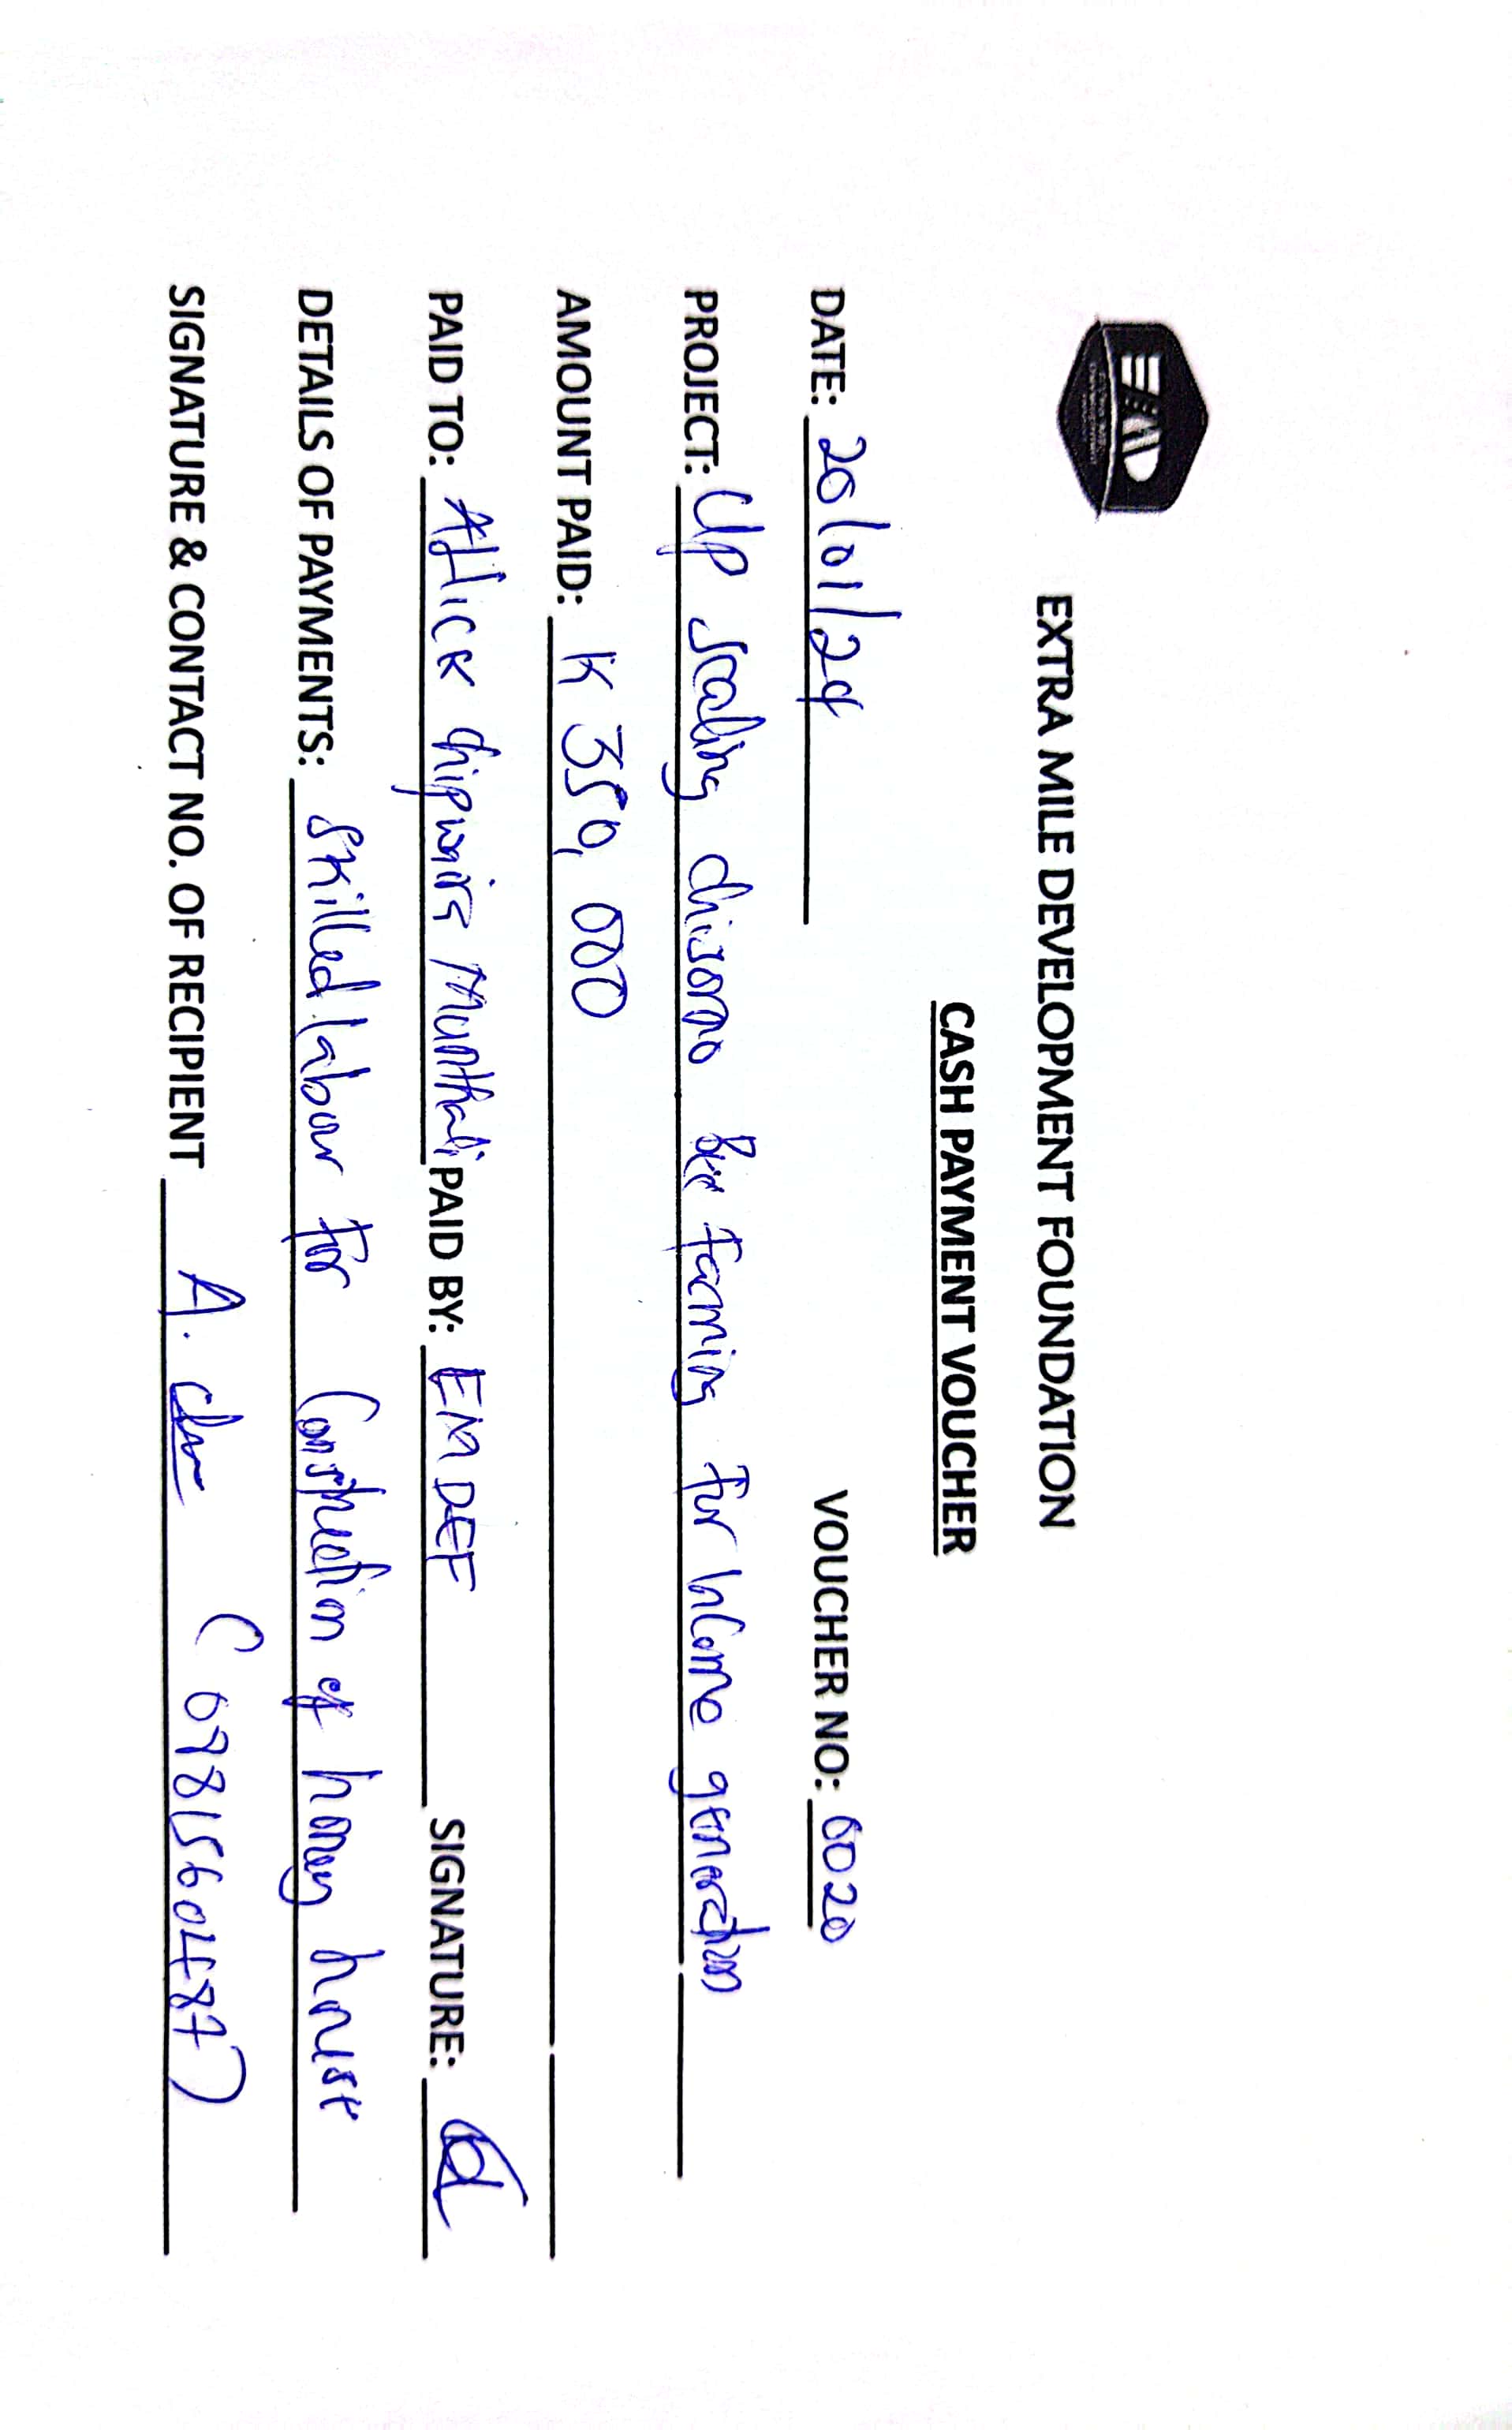 EMD
EXTRA MILE DEVELOPMENT FOUNDATION
CASH PAYMENT VOUCHER
DATE: 20/01/24 VOUCHER NO: 0020
PROJECT: Up scaling chisomo bee farming for income generation
AMOUNT PAID: K 350,000
PAID TO: Atlick chipwaira Munthali PAID BY: EMDEF SIGNATURE:
DETAILS OF PAYMENTS: Skilled labour for Construction of honey house
SIGNATURE & CONTACT NO. OF RECIPIENT A. (0981560487)